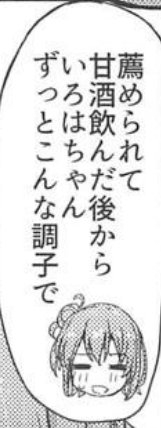 薦められて
甘酒飲んだ後から
いろはちゃん
ずっとこんな調子で